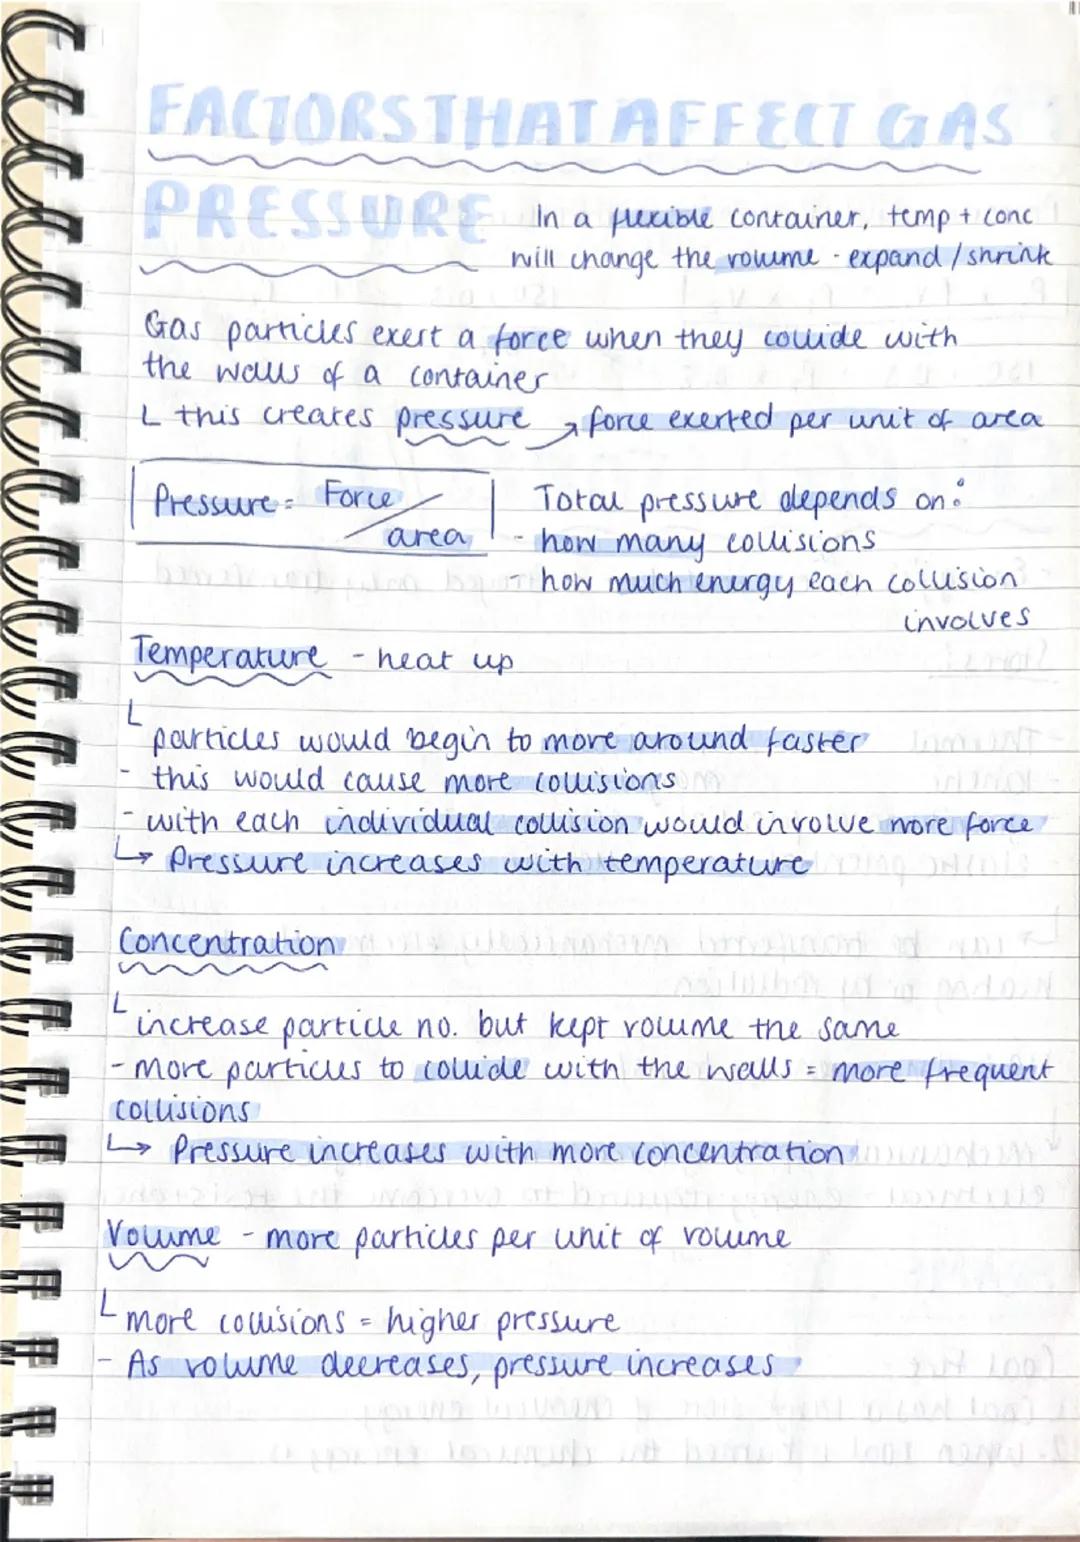 FACTORS THAT AFFECT GAS
PRESSURE
In a flexible container, temp + conc
will change the volume - expand / shrink
Gas particles exert a force when they collide with
the walls of a container
this creates pressure → force exerted per unit of area
Pressure = Force / area
Total pressure depends on:
- how many collisions
- how much energy each collision
involves
Temperature - heat up
particles would begin to move around faster
- this would cause more collisions
- with each individual collision would involve more force
↳ Pressure increases with temperature
Concentration
increase particle no. but kept volume the same
- more particles to collide with the walls = more frequent
collisions
↳ Pressure increases with more concentration
Volume - more particles per unit of volume
more collisions = higher pressure
- As volume decreases, pressure increases